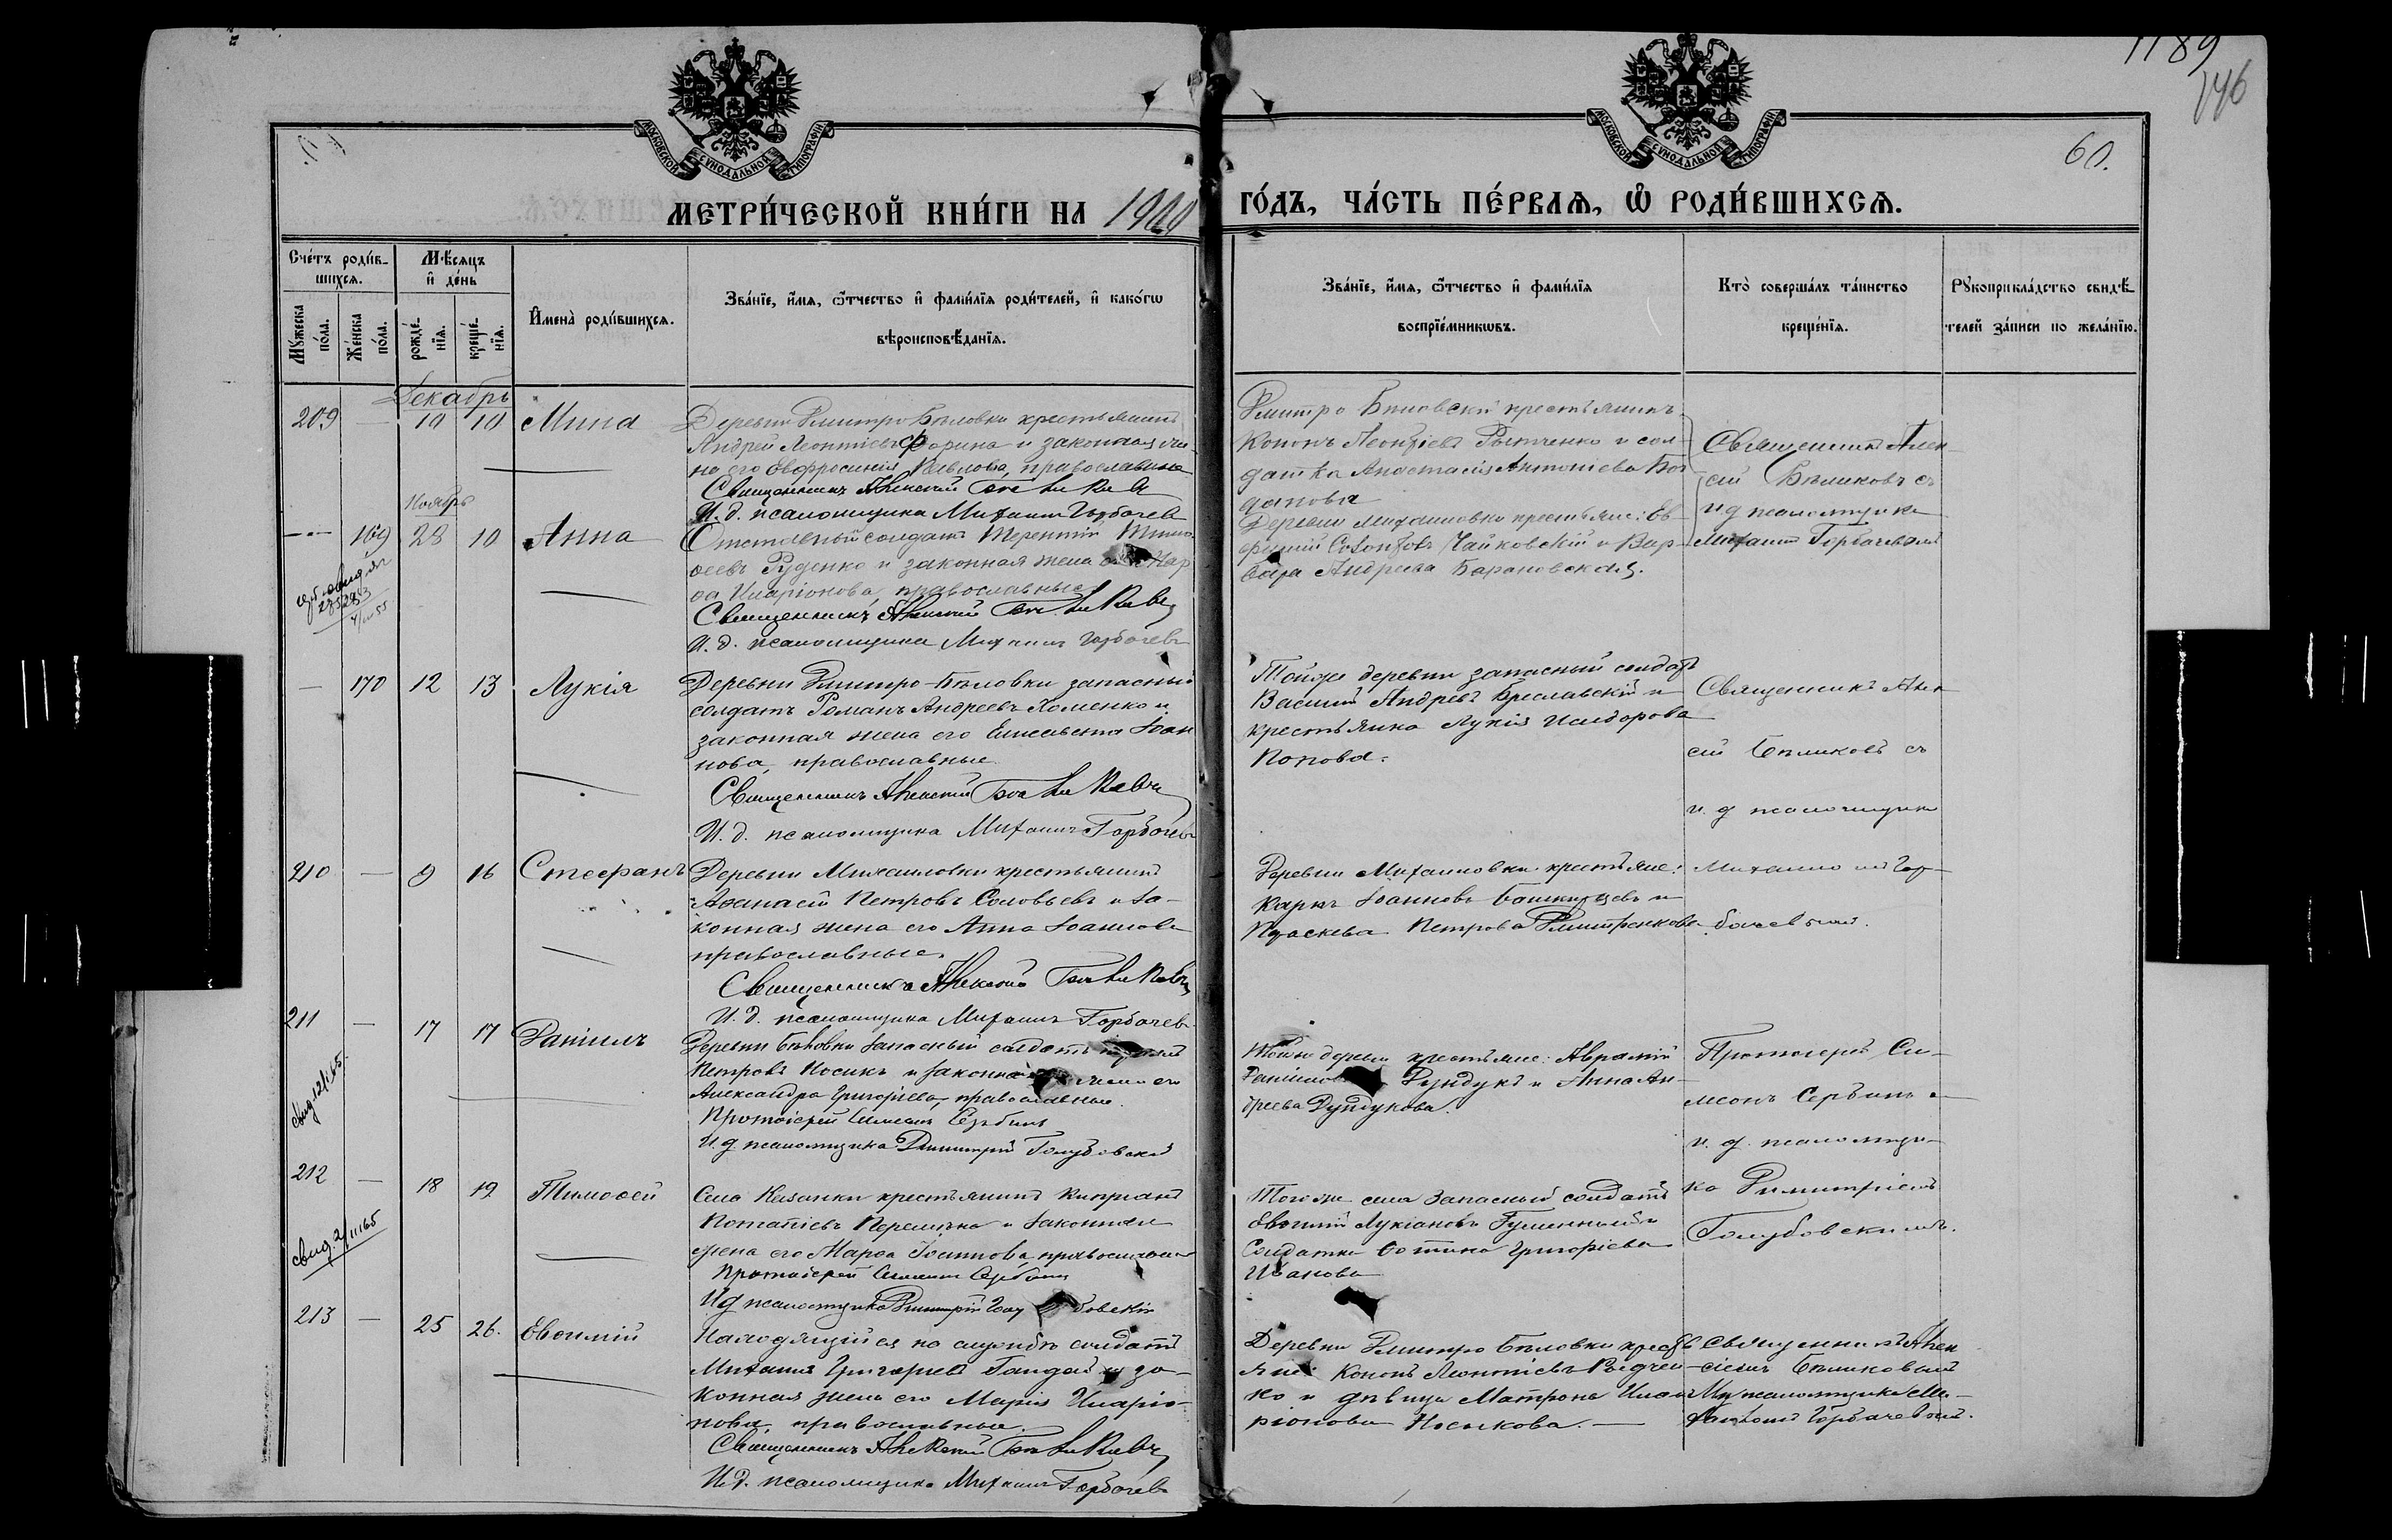 1189
146
60.
МОСКОВСКОЙ СѴНОДАЛЬНОЙ ТИПОГРАФІИ
МОСКОВСКОЙ СѴНОДАЛЬНОЙ ТИПОГРАФІИ
МЕТРИ́ЧЕСКОЙ КНИ́ГИ НА 1900 ГО́ДЪ, ЧА́СТЬ ПЕ́РВАЯ, Ѡ РОДИ́ВШИХСЯ.
Сче́тъ роди́в-
шихся.
Мѣ́сяцъ
и҆ де́нь
Му́жеска по́ла.
Же́нска по́ла.
рожде́-
нїя.
креще́-
нїя.
И҆мена̀ роди́вшихся.
Зва́нїе, и҆́мя, ѻ҆́тчество и҆ фами́лїя роди́телей, и҆ како́гѡ
вѣроисповѣ́данїя.
Зва́нїе, и҆́мя, ѻ҆́тчество и҆ фами́лїя
воспрїе́мникѡвъ.
Кто̀ соверша́лъ та́инство
креще́нїя.
Рꙋкоприкла́дство свидѣ́-
телей за́писи по жела́нїю.
Декабрь
209 — 10 10 Мина
Деревни Дмитро Бѣловки крестьянинъ
Андрей Леонтіевъ Фарина и законная же-
на его Евфросинія Павлова, православные
Священникъ Алексій Бѣликовъ
И. д. псаломщика Михаилъ Горбачев
Дмитро Бѣловски крестьянинъ
Кононъ Леонтіевъ и сол-
датка Анастасія Антоніева Бог
данова
Священникъ Алек-
сій Бѣликовъ съ
и д псаломщика
Михаил Горбачевым
Ноябрь
— 169 28 10 Анна
Отставной солдатъ Терентій Тимо
ѳеевъ Руденко и законная жена его Мар
ѳа Иларіонова, православные
Священникъ Алексій Бѣликовъ
И. д. псаломщика Михаилъ Горбачевъ
Деревни Михаиловки крестьяне: Ев-
фимій Чайковскій и Вар-
вара Андреева Барановская.
— 170 12 13 Лукія
Деревни Дмитро-Бѣловки запасный
солдатъ Романъ Андреевъ Хоменко и
законная жена его Елисавета Іоан
нова, православные
Священникъ Алексій Бѣликовъ
И. д. псаломщика Михаилъ Горбачевъ
Тойже деревни запасный солдатъ
Василій Андревъ Бреславскій и
крестьянка Лукія Исидорова
Попова.
Священникъ Алек
сій Бѣликовъ съ
и. д псаломщика
210 — 9 16 Стефанъ
Деревни Михаиловки крестьянинъ
Аѳанасій Петровъ Соловьевъ и за-
конная жена его Анна Іоаннова
православные.
Священникъ Алексій Бѣликовъ
И. д. псаломщика Михаилъ Горбачев
Деревни Михаиловки крестьяне:
Карпъ Іоанновъ и
Параскева Петрова Дмитренкова
Михаиломъ Гор-
бачевымъ.
211 — 17 17 Даніилъ
Деревни Бѣловки запасный солдатъ
Петровъ Носикъ и законная жена его
Александра Григоріева, православные.
Протоіерей Симеонъ Сербинъ
И. д псаломщика Димитрій Голубовскій
Тойже деревни крестьяне: Аврамій
Даніиловъ Дундукъ и Анна Ан-
дреева Дундукова.
Протоіерей Си-
меонъ Сербинъ съ
и. д. псаломщи-
212 — 18 19 Тимоѳей
Села Казанки крестьянинъ Кипріанъ
Потапіевъ и законная
жена его Марѳа Іоаннова, православные
Протоіерей Симеонъ Сербинъ
И д псаломщика Димитрій Голубовскій
Тогоже села запасный солдатъ
Евѳимій Лукіановъ и
Солдатка Григоріева
Иванова
ка Димитріемъ
Голубовскимъ.
свид. 2/III 65
213 — 25 26. Евѳимій
Находящійся на службѣ солдатъ
Михаилъ Григоріевъ и за-
конная жена его Марія Иларіо-
нова, православные.
Священникъ Алексій Бѣликовъ
И.д. псаломщика Михаилъ Горбачевъ
Деревни Дмитро Бѣловки кресть
яне: Кононъ Леонтіевъ
ко и дѣвица Матрона Ила
ріонова Носикова. —
Священникъ Алек
сіемъ Бѣликовым
И д псаломщика Ми-
хаиломъ Горбачевым.